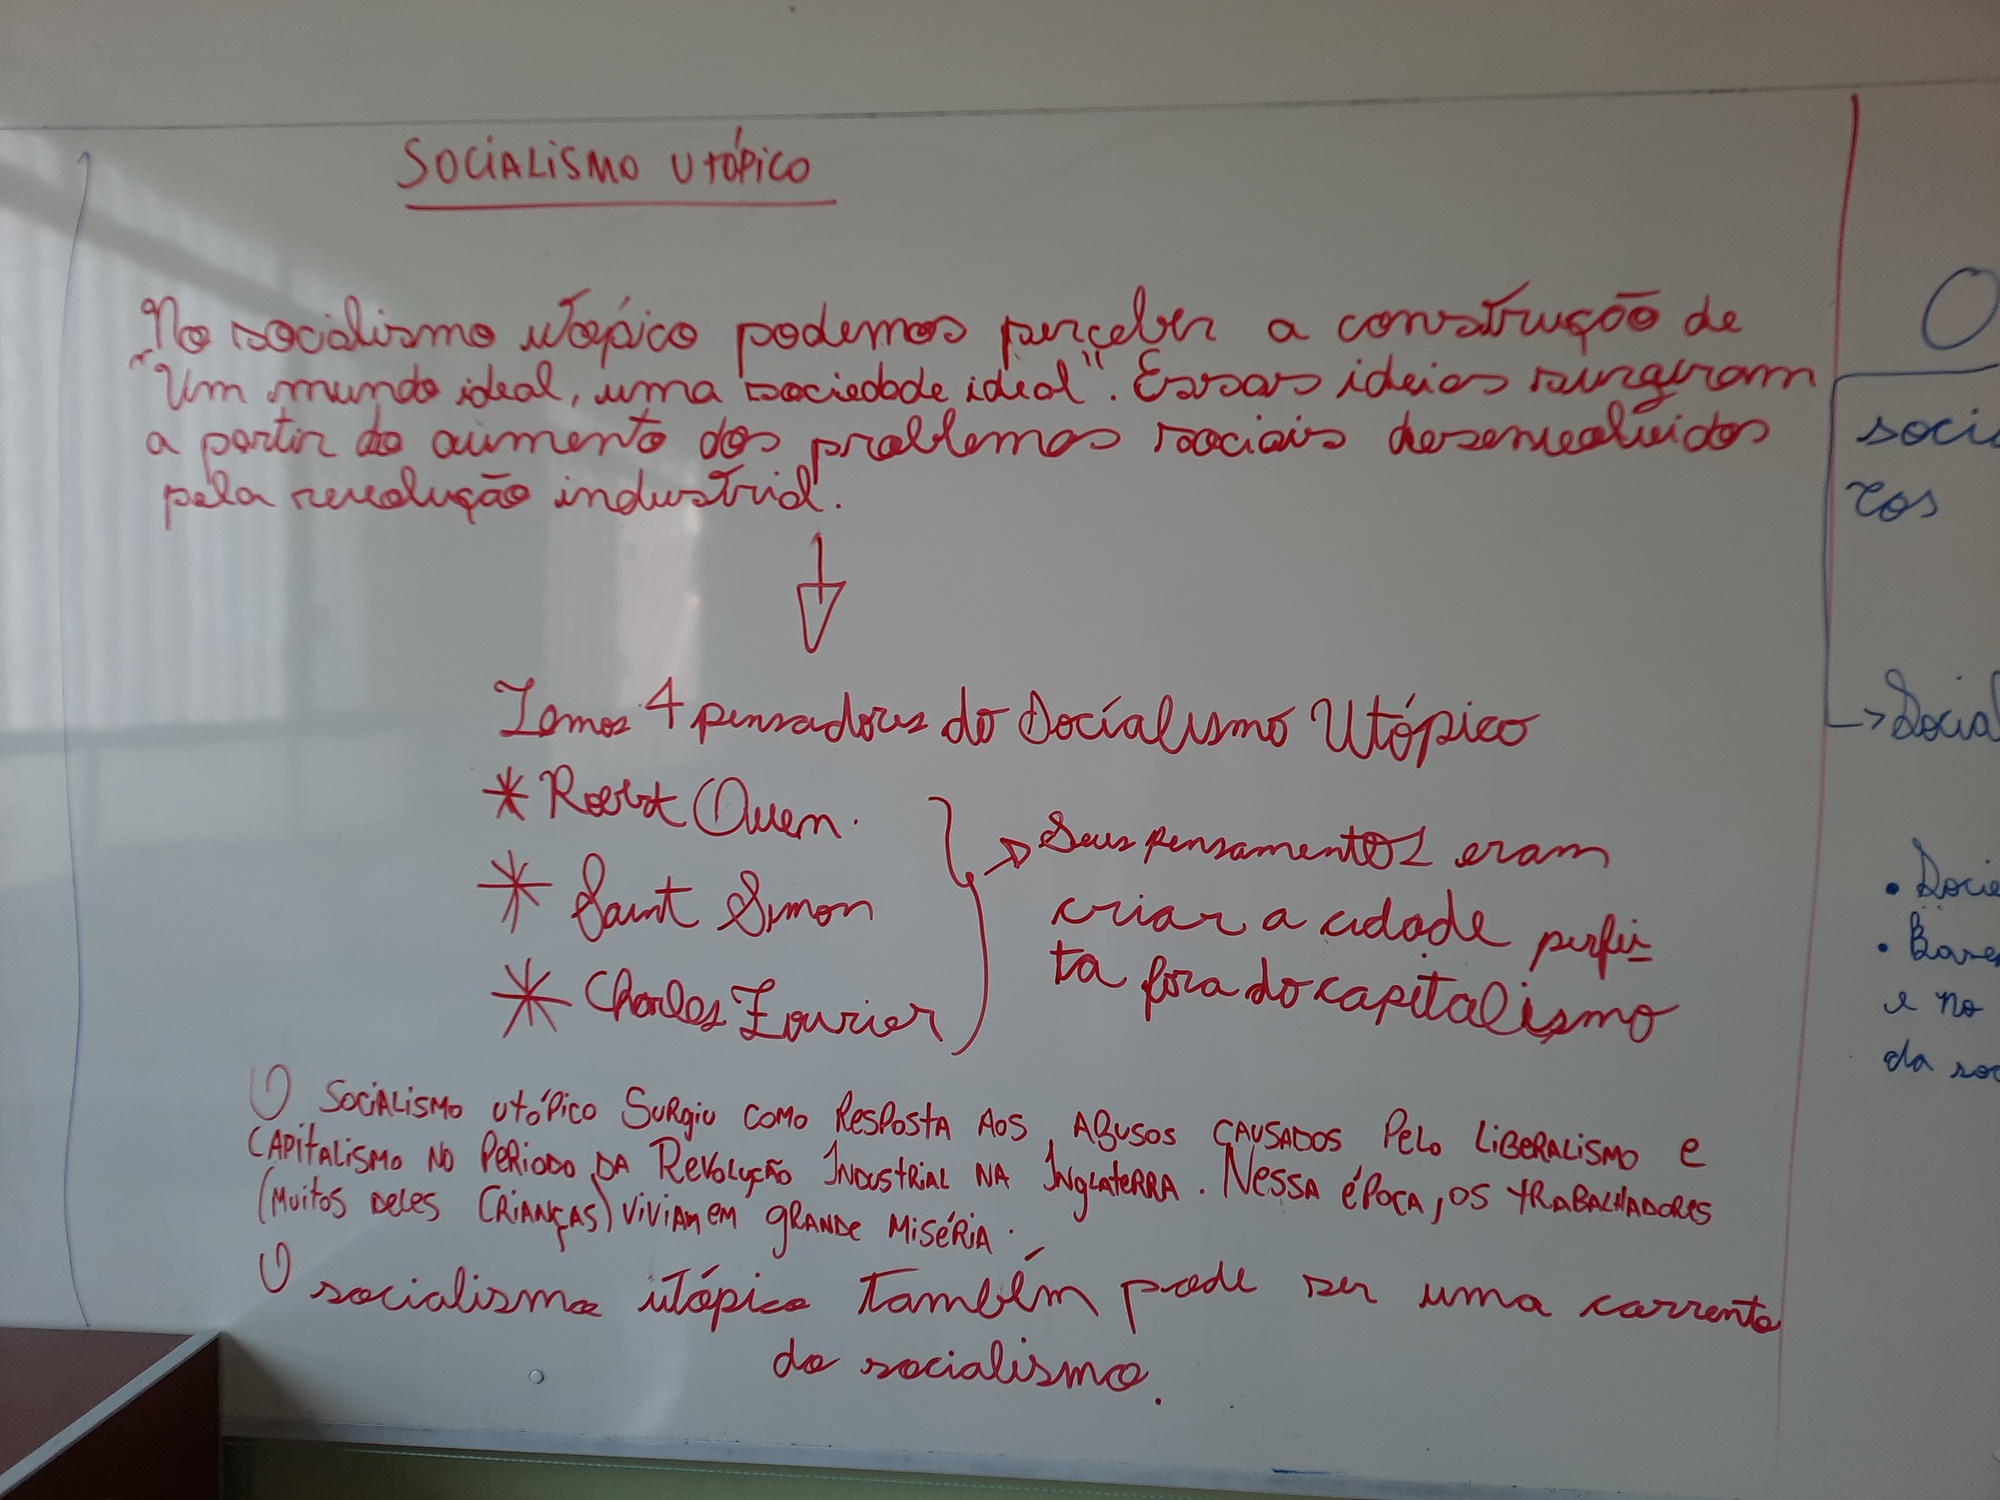 SOCIALISMO UTÓPICO
No socialismo utópico podemos perceber a construção de
"Um mundo ideal, uma sociedade ideal". Essas ideias surgiram
a partir do aumento dos problemas sociais desenvolvidos
pela revolução industrial.
Temos 4 pensadores do Socialismo Utópico
* Robert Owen.
* Saint Simon
* Charles Fourier
→ Seus pensamentos eram
criar a cidade perfei-
ta fora do capitalismo
O SOCIALISMO UTÓPICO SURGIU COMO RESPOSTA AOS ABUSOS CAUSADOS PELO LIBERALISMO E
CAPITALISMO NO PERIODO DA REVOLUÇÃO INDUSTRIAL NA INGLATERRA. NESSA ÉPOCA, OS TRABALHADORES
(MUITOS DELES CRIANÇAS) VIVIAM EM GRANDE MISÉRIA.
O socialismo utópico também pode ser uma corrente
do socialismo.
O
socia
cos
→ Social
• Socie
• Base
e no
da soc